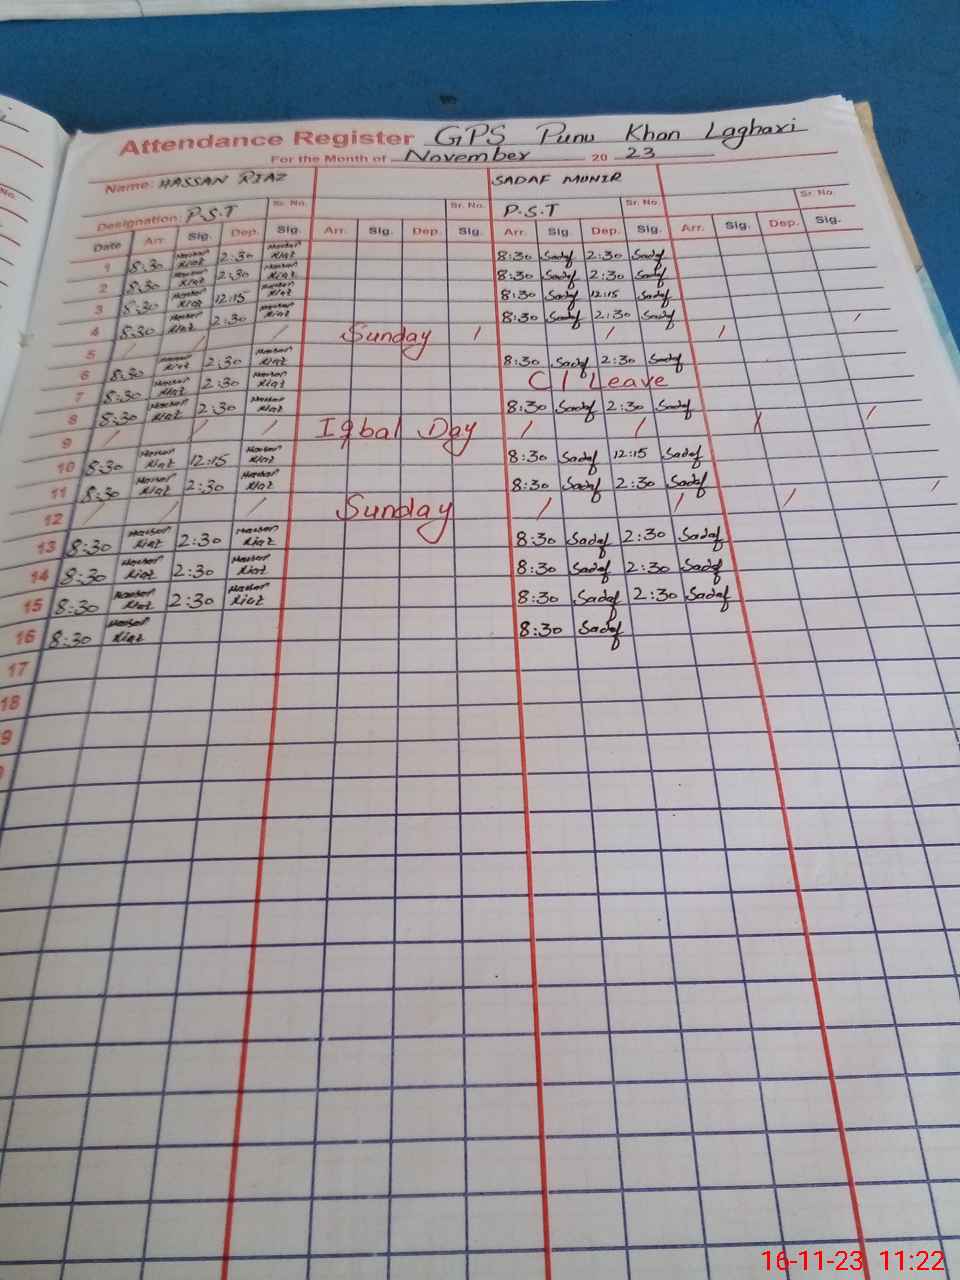 Attendance Register GPS Punu Khan Laghari
For the Month of November 20 23
Name: HASSAN RIAZ SADAF MUNIR
Designation: P.S.T Sr. No. Sr. No. P.S.T Sr. No. Sr. No.
Date Arr. Sig. Dep. Sig. Arr. Sig. Dep. Sig. Arr. Sig. Dep. Sig. Arr. Sig. Dep. Sig.
1 8:30 Hassan Riaz 2:30 Hassan Riaz 8:30 Sadaf 2:30 Sadaf
2 8:30 Hassan Riaz 2:30 Hassan Riaz 8:30 Sadaf 2:30 Sadaf
3 8:30 Hassan Riaz 12:15 Hassan Riaz 8:30 Sadaf 12:15 Sadaf
4 8:30 Hassan Riaz 2:30 Hassan Riaz 8:30 Sadaf 2:30 Sadaf
5 / / / Sunday / / / /
6 8:30 Hassan Riaz 2:30 Hassan Riaz 8:30 Sadaf 2:30 Sadaf
7 8:30 Hassan Riaz 2:30 Hassan Riaz C l Leave
8 8:30 Hassan Riaz 2:30 Hassan Riaz 8:30 Sadaf 2:30 Sadaf
9 / / / Iqbal Day / / / /
10 8:30 Hassan Riaz 12:15 Hassan Riaz 8:30 Sadaf 12:15 Sadaf
11 8:30 Hassan Riaz 2:30 Hassan Riaz 8:30 Sadaf 2:30 Sadaf
12 / / / Sunday / / / /
13 8:30 Hassan Riaz 2:30 Hassan Riaz 8:30 Sadaf 2:30 Sadaf
14 8:30 Hassan Riaz 2:30 Hassan Riaz 8:30 Sadaf 2:30 Sadaf
15 8:30 Hassan Riaz 2:30 Hassan Riaz 8:30 Sadaf 2:30 Sadaf
16 8:30 Hassan Riaz 8:30 Sadaf
17
18
9
16-11-23 11:22